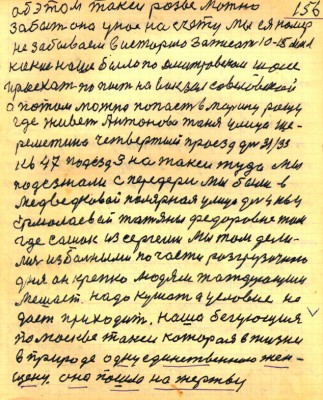 156
об этом такси разве можно
забыт она у нас на счёту мы ея номер
не забываем в историю записат 10-15 мая
какие наше было по дмитровскому шоссе
проехат по пят на вокзал савёловской
а потом можно попаст в марину рощу
где живет Антонова таня улица ше-
реметино четвертий проезд дом 31/33
кв 47 подёзд 3 на такси туда мы
подезжали с передери мы были в
медведковой полярная улица дом 4 кв 4
Ермолаевой татяны федоровне там
где сашок из сергеии мы там дели-
лис избаними по част разгрузичного
дня он крепко людям
мешает. надо кушат а условие не
дает приходит. наша бегующия
по москве такси которая в жизни
в природе одну единственною жен-
щену. она пошло на жертву